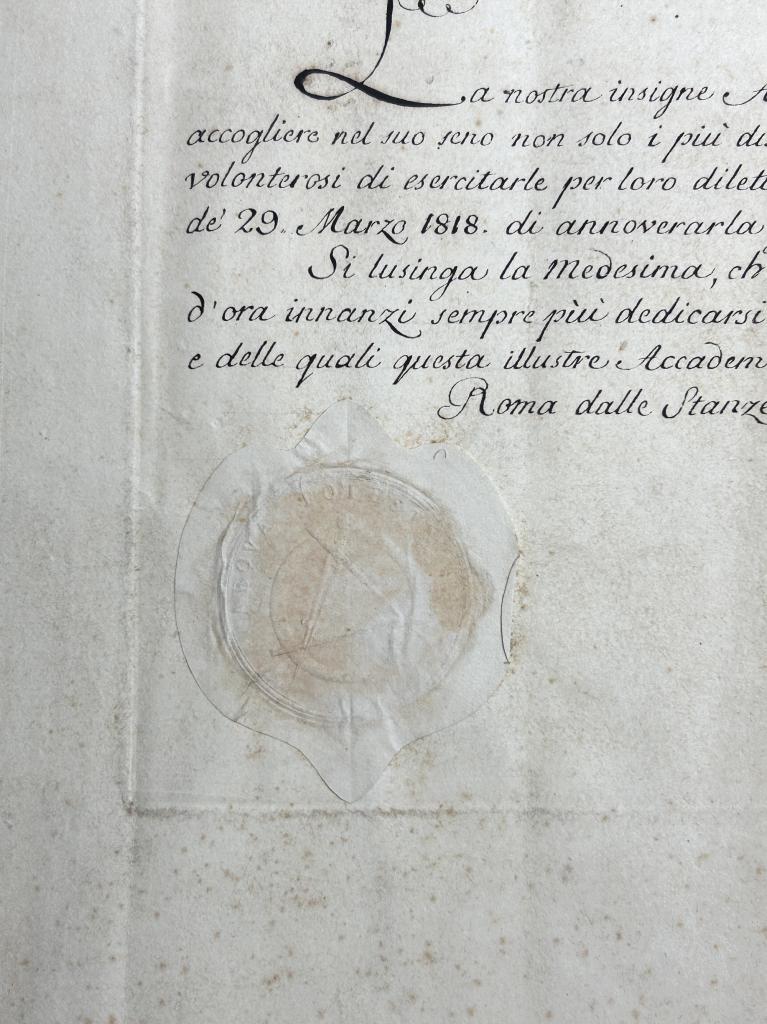 La nostra insigne A
accogliere nel suo seno non solo i più dis
volonterosi di esercitarle per loro dilett
de' 29. Marzo 1818. di annoverarla
Si lusinga la Medesima, ch
d'ora innanzi sempre più dedicarsi
e delle quali questa illustre Accadem
Roma dalle Stanze